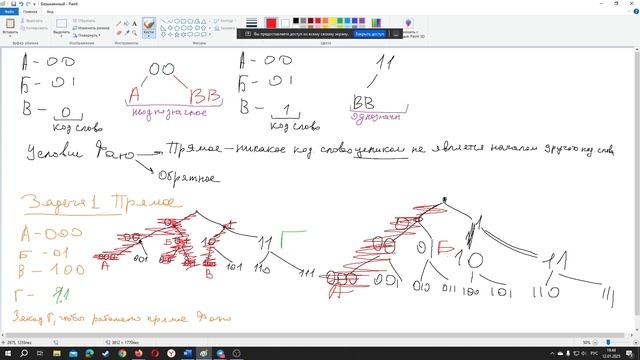 Безымянный - Paint
Файл
Главная
Вид
Вставить
Выделить
Изменить размер
Повернуть
Кисти
Буфер обмена
Изображение
Вы предоставляете доступ ко всему своему экрану.
Закрыть доступ
А - 00
Б - 01
В - 0
код слово
00
А ВВ
неоднозначное
А - 00
Б - 01
В - 1
код слово
11
ВВ
однозначн.
Условие Фано
Прямое - никакое код слово целиком не является началом другого код слова
Обратное
Задача 1 Прямое
А - 000
Б - 01
В - 100
Г - 11
Закод Г, чтобы работало прямое Фано
00
10
11 Г
000 001 101 110 111
А Б В
1
00 01 Б 10 11
000 001 010 011 100 101 110 111
А
2875, 1233пкс
3812 × 1770пкс
50%
РУС
19:44
12.01.2025